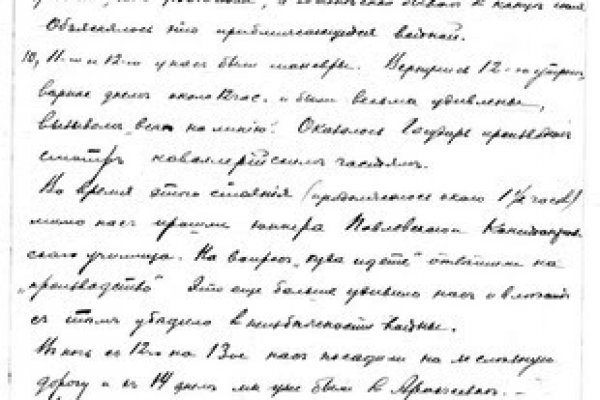 Объяснялось это приближающейся войной.
10, 11-го и 12-го у нас были маневры. Вернулись 12-го утром,
вернее днем около 12 час. и были весьма удивлены,
вызовом „всех на линию". Оказалось Государь производит
смотр кавалерийским частям.
Во время этого стояния (продолжалось около 1½ часов)
мимо нас прошли юнкера Павловского Константинов-
ского училища. На вопрос „куда идете" ответили на
„производство" Это еще больше удивило нас и
с тем убедило в неизбежности войны.
В ночь с 12го на 13ое нас посадили на железную
дорогу и в 14 днем мы уже были в